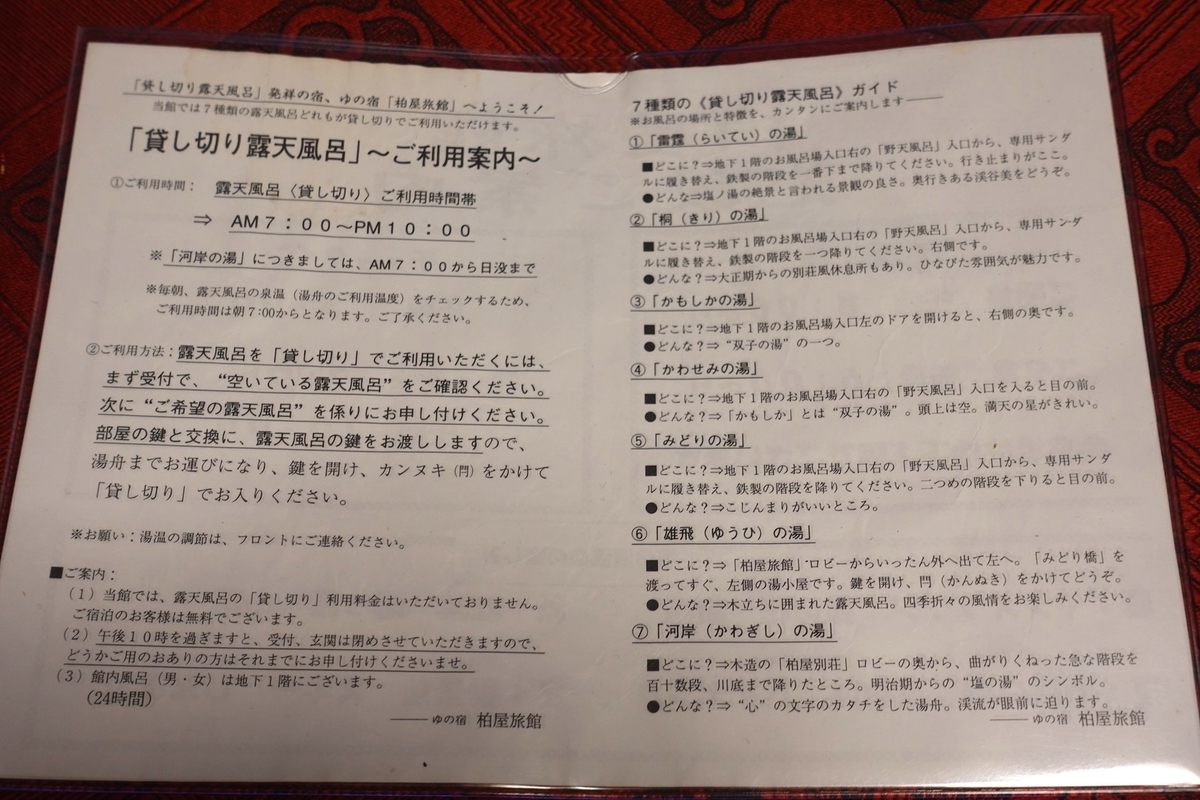 「貸し切り露天風呂」発祥の宿、ゆの宿「柏屋旅館」へようこそ！
当館では７種類の露天風呂どれもが貸し切りでご利用いただけます。
「貸し切り露天風呂」～ご利用案内～
①ご利用時間： 露天風呂〈貸し切り〉ご利用時間帯
⇒ AM７：００～PM１０：００
※「河岸の湯」につきましては、AM７：００から日没まで
※毎朝、露天風呂の泉温（湯舟のご利用温度）をチェックするため、
ご利用時間は朝7:00からとなります。ご了承ください。
②ご利用方法：露天風呂を「貸し切り」でご利用いただくには、
まず受付で、“空いている露天風呂”をご確認ください。
次に“ご希望の露天風呂”を係りにお申し付けください。
部屋の鍵と交換に、露天風呂の鍵をお渡ししますので、
湯舟までお運びになり、鍵を開け、カンヌキ（閂）をかけて
「貸し切り」でお入りください。
※お願い：湯温の調節は、フロントにご連絡ください。
■ご案内：
（１）当館では、露天風呂の「貸し切り」利用料金はいただいておりません。
ご宿泊のお客様は無料でございます。
（２）午後１０時を過ぎますと、受付、玄関は閉めさせていただきますので、
どうかご用のおありの方はそれまでにお申し付けくださいませ。
（３）館内風呂（男・女）は地下１階にございます。
（24時間）
――― ゆの宿 柏屋旅館
７種類の《貸し切り露天風呂》ガイド
※お風呂の場所と特徴を、カンタンにご案内します―――
①「雷霆（らいてい）の湯」
■どこに？⇒地下１階のお風呂場入口右の「野天風呂」入口から、専用サンダ
ルに履き替え、鉄製の階段を一番下まで降りてください。行き止まりがここ。
●どんな？⇒塩ノ湯の絶景と言われる景観の良さ。奥行きある渓谷美をどうぞ。
②「桐（きり）の湯」
■どこに？⇒地下１階のお風呂場入口右の「野天風呂」入口から、専用サンダ
ルに履き替え、鉄製の階段を一つ降りてください。右側です。
●どんな？⇒大正期からの別荘風休息所もあり。ひなびた雰囲気が魅力です。
③「かもしかの湯」
■どこに？⇒地下１階のお風呂場入口左のドアを開けると、右側の奥です。
●どんな？⇒“双子の湯”の一つ。
④「かわせみの湯」
■どこに？⇒地下１階のお風呂場入口右の「野天風呂」入口を入ると目の前。
●どんな？⇒「かもしか」とは“双子の湯”。頭上は空。満天の星がきれい。
⑤「みどりの湯」
■どこに？⇒地下１階のお風呂場入口右の「野天風呂」入口から、専用サンダ
ルに履き替え、鉄製の階段を降りてください。二つめの階段を下りると目の前。
●どんな？⇒こじんまりがいいところ。
⑥「雄飛（ゆうひ）の湯」
■どこに？⇒「柏屋旅館」ロビーからいったん外へ出て左へ。「みどり橋」を
渡ってすぐ、左側の湯小屋です。鍵を開け、閂（かんぬき）をかけてどうぞ。
●どんな？⇒木立ちに囲まれた露天風呂。四季折々の風情をお楽しみください。
⑦「河岸（かわぎし）の湯」
■どこに？⇒木造の「柏屋別荘」ロビーの奥から、曲がりくねった急な階段を
百十数段、川底まで降りたところ。明治期からの“塩の湯”のシンボル。
●どんな？⇒“心”の文字のカタチをした湯舟。渓流が眼前に迫ります。
――― ゆの宿 柏屋旅館